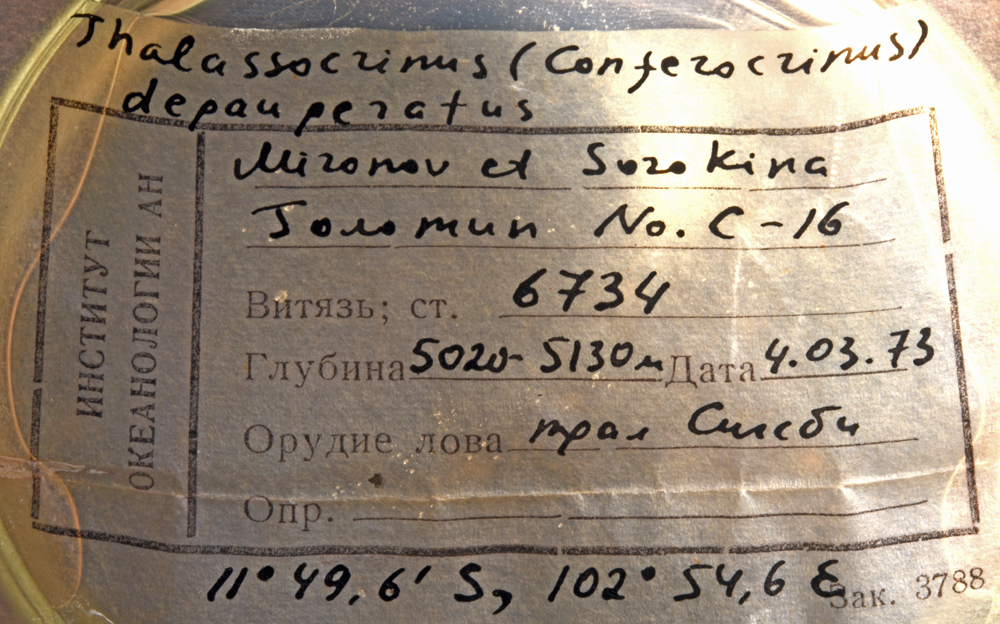 Thalassocrinus (Conferocrinus)
depauperatus
Mironov et Sorokina
Голотип No. C-16
Витязь; ст. 6734
Глубина 5020-5130м Дата 4.03.73
Орудие лова трал Сигсби
Опр.
11° 49,6' S, 102° 54,6 E
Зак. 3788
ИНСТИТУТ
ОКЕАНОЛОГИИ АН